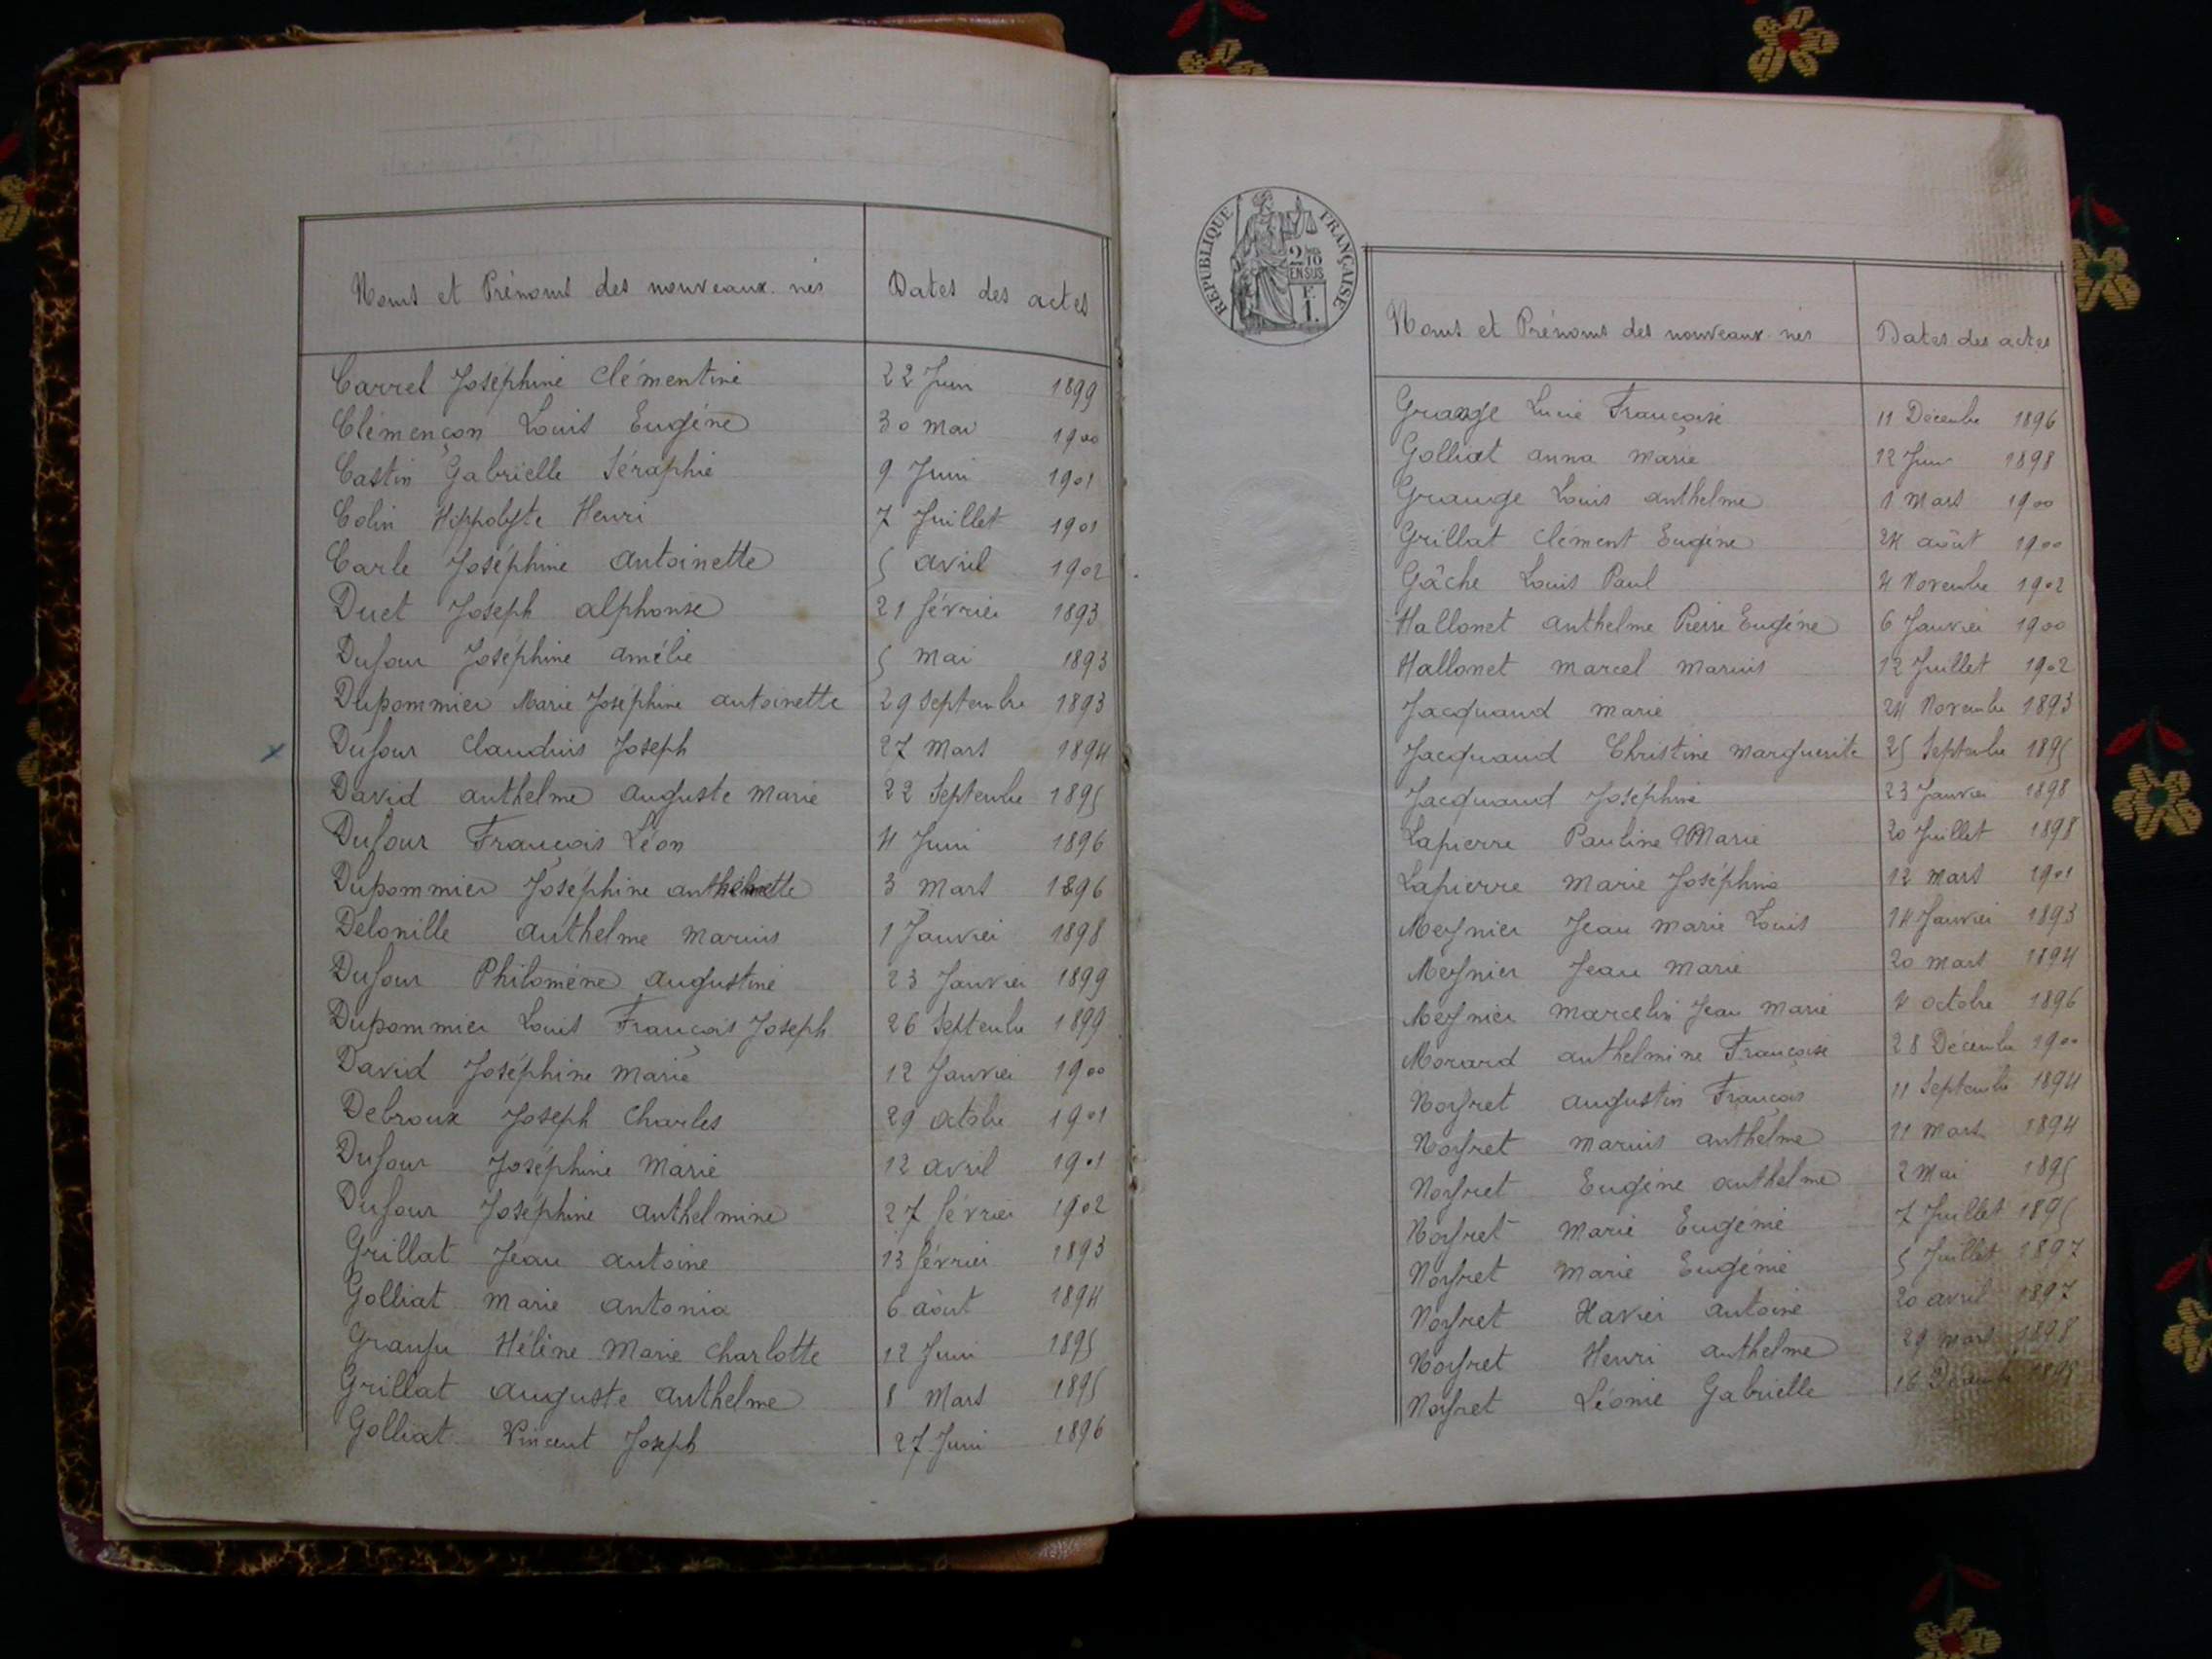 Noms et Prénoms des nouveaux-nés Dates des actes
Carrel Joséphine Clémentine 22 Juin 1899
Clémençon Louis Eugène 30 Mai 1900
Castin Gabrielle Séraphie 9 Juin 1901
Colin Hippolyte Henri 7 Juillet 1901
Carle Joséphine Antoinette 5 avril 1902
Duet Joseph alphonse 21 février 1893
Dufour Joséphine amélie 5 Mai 1893
Dupommier Marie Joséphine antoinette 29 Septembre 1893
Dufour Claudius Joseph 27 Mars 1894
David anthelme auguste Marie 22 Septembre 1895
Dufour François Léon 4 Juin 1896
Dupommier Joséphine 3 Mars 1896
Delonille anthelme Marius 1 Janvier 1898
Dufour Philomène augustine 23 Janvier 1899
Dupommier Louis François Joseph 26 Septembre 1899
David Joséphine Marie 12 Janvier 1900
Debroux Joseph Charles 29 Octobre 1901
Dufour Joséphine Marie 12 avril 1901
Dufour Joséphine anthelmine 27 février 1902
Grillat Jean antoine 13 février 1893
Golliat Marie antonia 6 août 1894
Hélène Marie Charlotte 12 Juin 1895
Grillat auguste anthelme 8 Mars 1895
Golliat Vincent Joseph 27 Juin 1896
RÉPUBLIQUE FRANÇAISE
2/10
EN SUS
F.
1.
Noms et Prénoms des nouveaux-nés Dates des actes
Grange Lucie Françoise 11 Décembre 1896
Golliat anna Marie 12 Juin 1898
Grange Louis anthelme 1 Mars 1900
Grillat Clément Eugène 24 août 1900
Gâche Louis Paul 4 Novembre 1902
Hallonet anthelme Pierre Eugène 6 Janvier 1900
Hallonet Marcel Marius 12 Juillet 1902
Jacquand Marie 24 Novembre 1893
Jacquand Christine Marguerite 25 Septembre 1895
Jacquand Joséphine 23 Janvier 1898
Lapierre Pauline Marie 20 Juillet 1898
Lapierre Marie Joséphine 12 Mars 1901
Meynier Jean Marie Louis 14 Janvier 1893
Meynier Jean Marie 20 Mars 1894
Meynier Marcelin Jean Marie 4 octobre 1896
Morard anthelmine Françoise 28 Décembre 1900
Noyret augustin François 11 Septembre 1894
Noyret Marius anthelme 11 Mars 1894
Noyret Eugène anthelme 2 Mai 1895
Noyret Marie Eugénie 7 Juillet 1895
Noyret Marie Eugénie 5 Juillet 1897
Noyret Xavier antoine 20 avril 1897
Noyret Henri anthelme 29 Mars 1898
Noyret Léonie Gabrielle 16 Décembre 1898